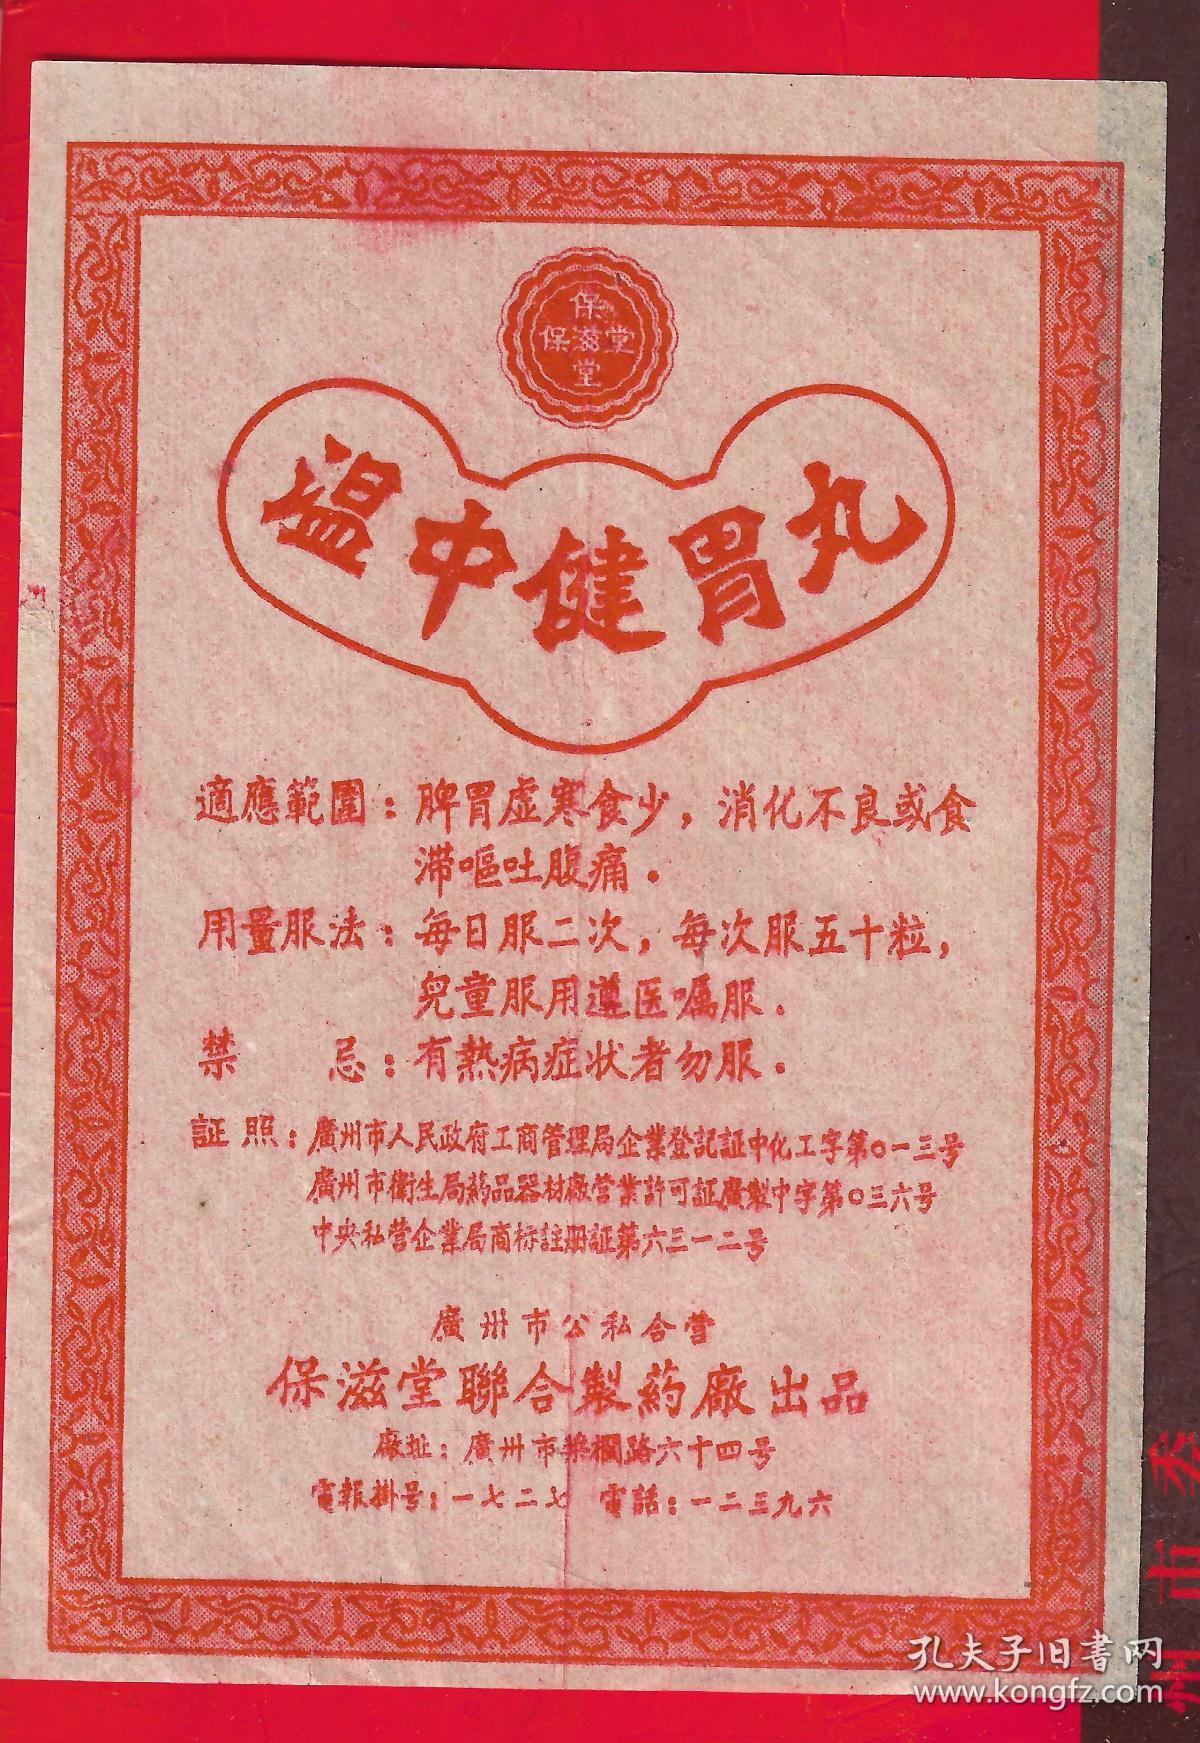 保
保滋堂
堂
溫中健胃丸
適應範圍：脾胃虛寒食少，消化不良或食
滞嘔吐腹痛．
用量服法：每日服二次，每次服五十粒，
兒童服用遵医嘱服．
禁忌：有熱病症状者勿服．
証照：廣州市人民政府工商管理局企業登記証中化工字第〇一三号
廣州市衛生局葯品器材廠营業許可証廣製中字第〇三六号
中央私营企業局商标註册証第六三一二号
廣州市公私合营
保滋堂聯合製葯廠出品
廠址：廣州市槳欄路六十四号
電報掛号：一七二七 電話：一二三九六
孔夫子旧書网
www.kongfz.com
州市